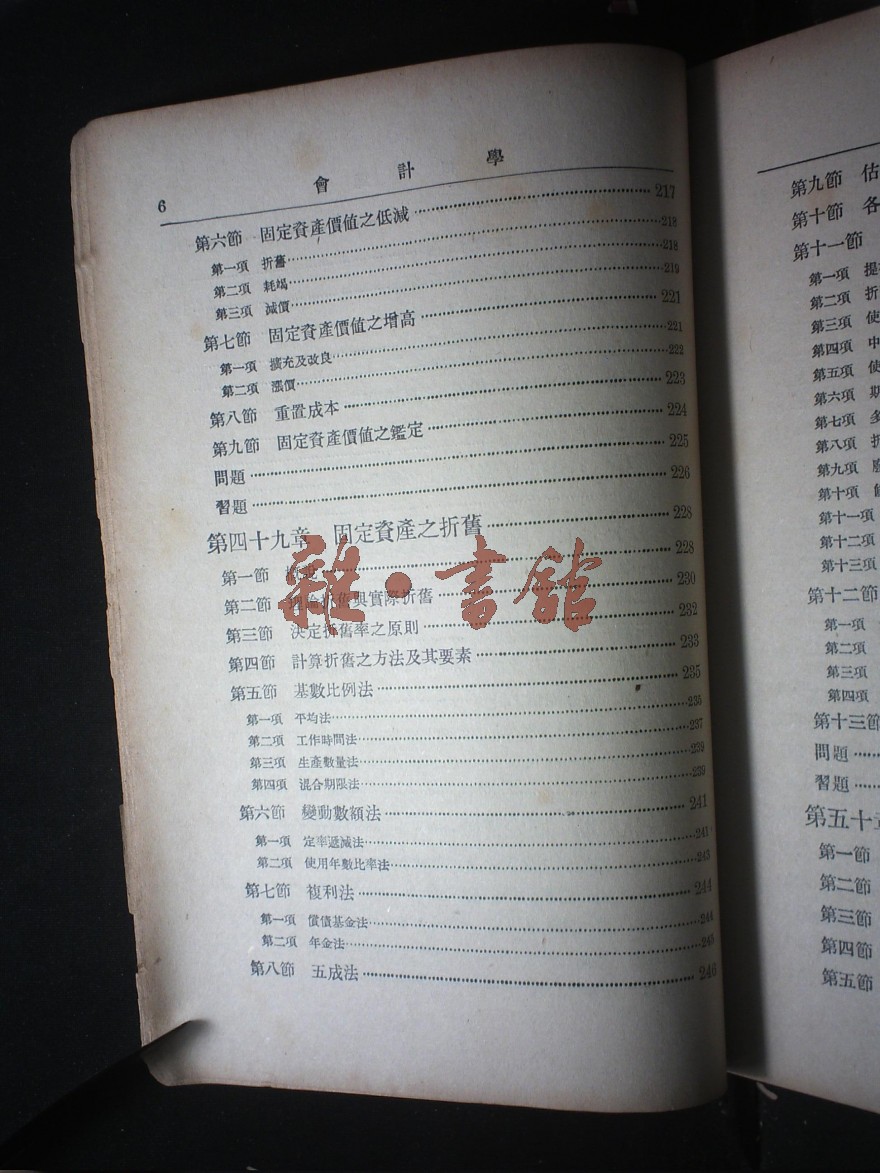 6 會計學
第六節 固定資產價值之低減 217
第一項 折舊 218
第二項 耗竭 218
第三項 減價 219
第七節 固定資產價值之增高 221
第一項 擴充及改良 221
第二項 漲價 222
第八節 重置成本 223
第九節 固定資產價值之鑑定 224
問題 225
習題 226
第四十九章 固定資產之折舊 228
第一節 228
第二節 理論折舊與實際折舊 230
第三節 決定折舊率之原則 232
第四節 計算折舊之方法及其要素 233
第五節 基數比例法 235
第一項 平均法 235
第二項 工作時間法 237
第三項 生產數量法 239
第四項 混合期限法 239
第六節 變動數額法 241
第一項 定率遞減法 241
第二項 使用年數比率法 243
第七節 複利法 244
第一項 償債基金法 244
第二項 年金法 245
第八節 五成法 246
雜·書館
第九節 估
第十節 各
第十一節
第一項 提
第二項 折
第三項 使
第四項 中
第五項 使
第六項 期
第七項 多
第八項 折
第九項
第十項
第十一項
第十二項
第十三項
第十二節
第一項
第二項
第三項
第四項
第十三節
問題
習題
第五十章
第一節
第二節
第三節
第四節
第五節